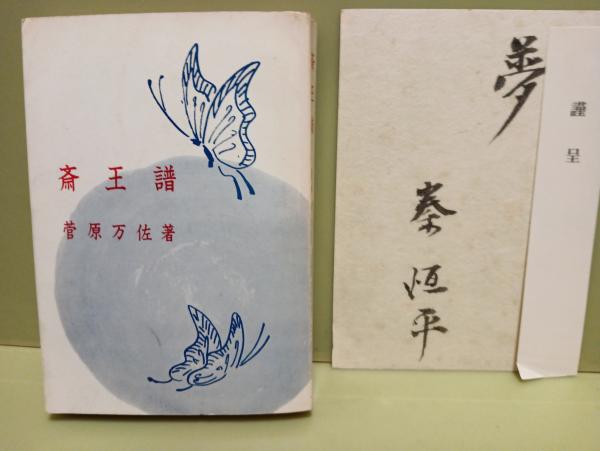 斎王譜
菅原万佐著
斎王譜
夢
秦恒平
謹呈